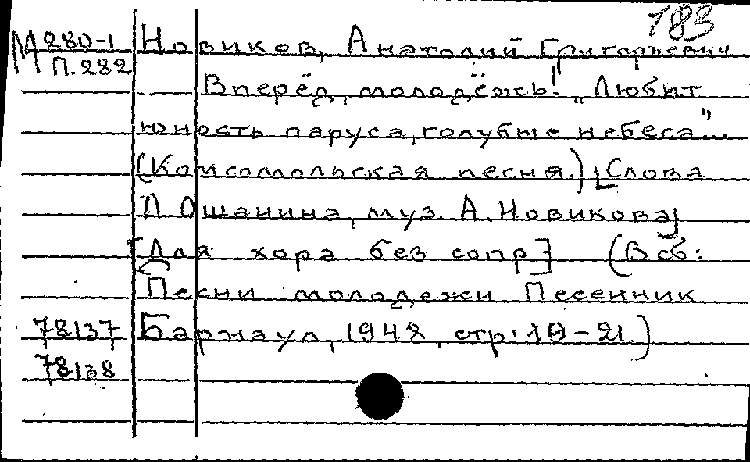 183
М 280-1 Новиков, Анатолий Григорьевич
П.282
Вперёд, молодёжь! „Любит
юность паруса, голубые небеса"...
(Комсомольская песня.) [Слова
Л. Ошанина, муз. А. Новикова]
[Для хора без сопр.] (В сб:
Песни молодежи Песенник
78137 Барнаул, 1948, стр. 19-21.)
78138